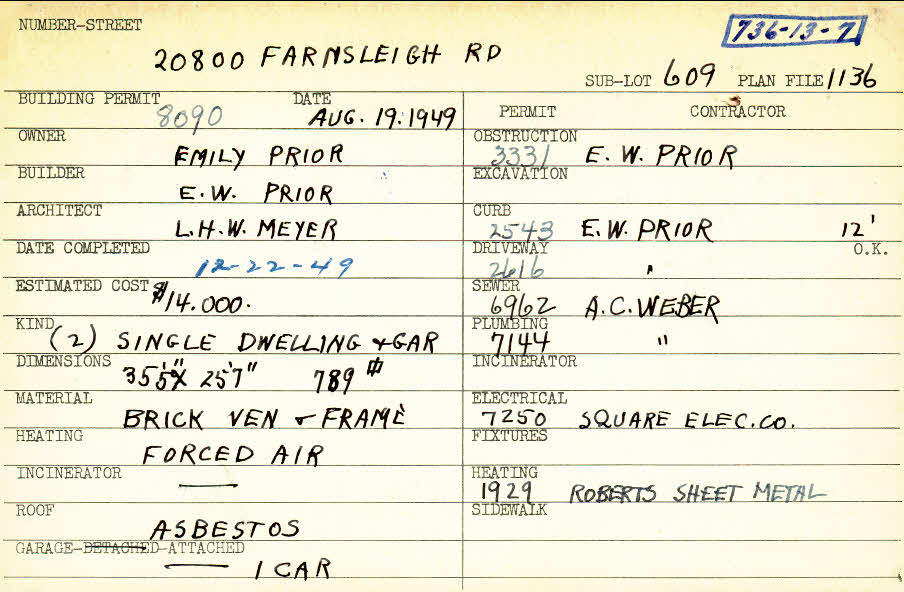 NUMBER-STREET
736-13-7
20800 FARNSLEIGH RD
SUB-LOT 609 PLAN FILE 1136
BUILDING PERMIT DATE
8090 AUG. 19. 1949
OWNER
EMILY PRIOR
BUILDER
E. W. PRIOR
ARCHITECT
L. H. W. MEYER
DATE COMPLETED
12-22-49
ESTIMATED COST
$14.000.
KIND
(2) SINGLE DWELLING + GAR
DIMENSIONS
35'5" X 25'7" 789
MATERIAL
BRICK VEN + FRAME
HEATING
FORCED AIR
INCINERATOR
—
ROOF
ASBESTOS
GARAGE-DETACHED-ATTACHED
— 1 CAR
PERMIT CONTRACTOR
OBSTRUCTION
3331 E. W. PRIOR
EXCAVATION
CURB
2543 E. W. PRIOR 12'
DRIVEWAY O.K.
2616 "
SEWER
6962 A. C. WEBER
PLUMBING
7144 "
INCINERATOR
ELECTRICAL
7250 SQUARE ELEC. CO.
FIXTURES
HEATING
1929 ROBERTS SHEET METAL
SIDEWALK